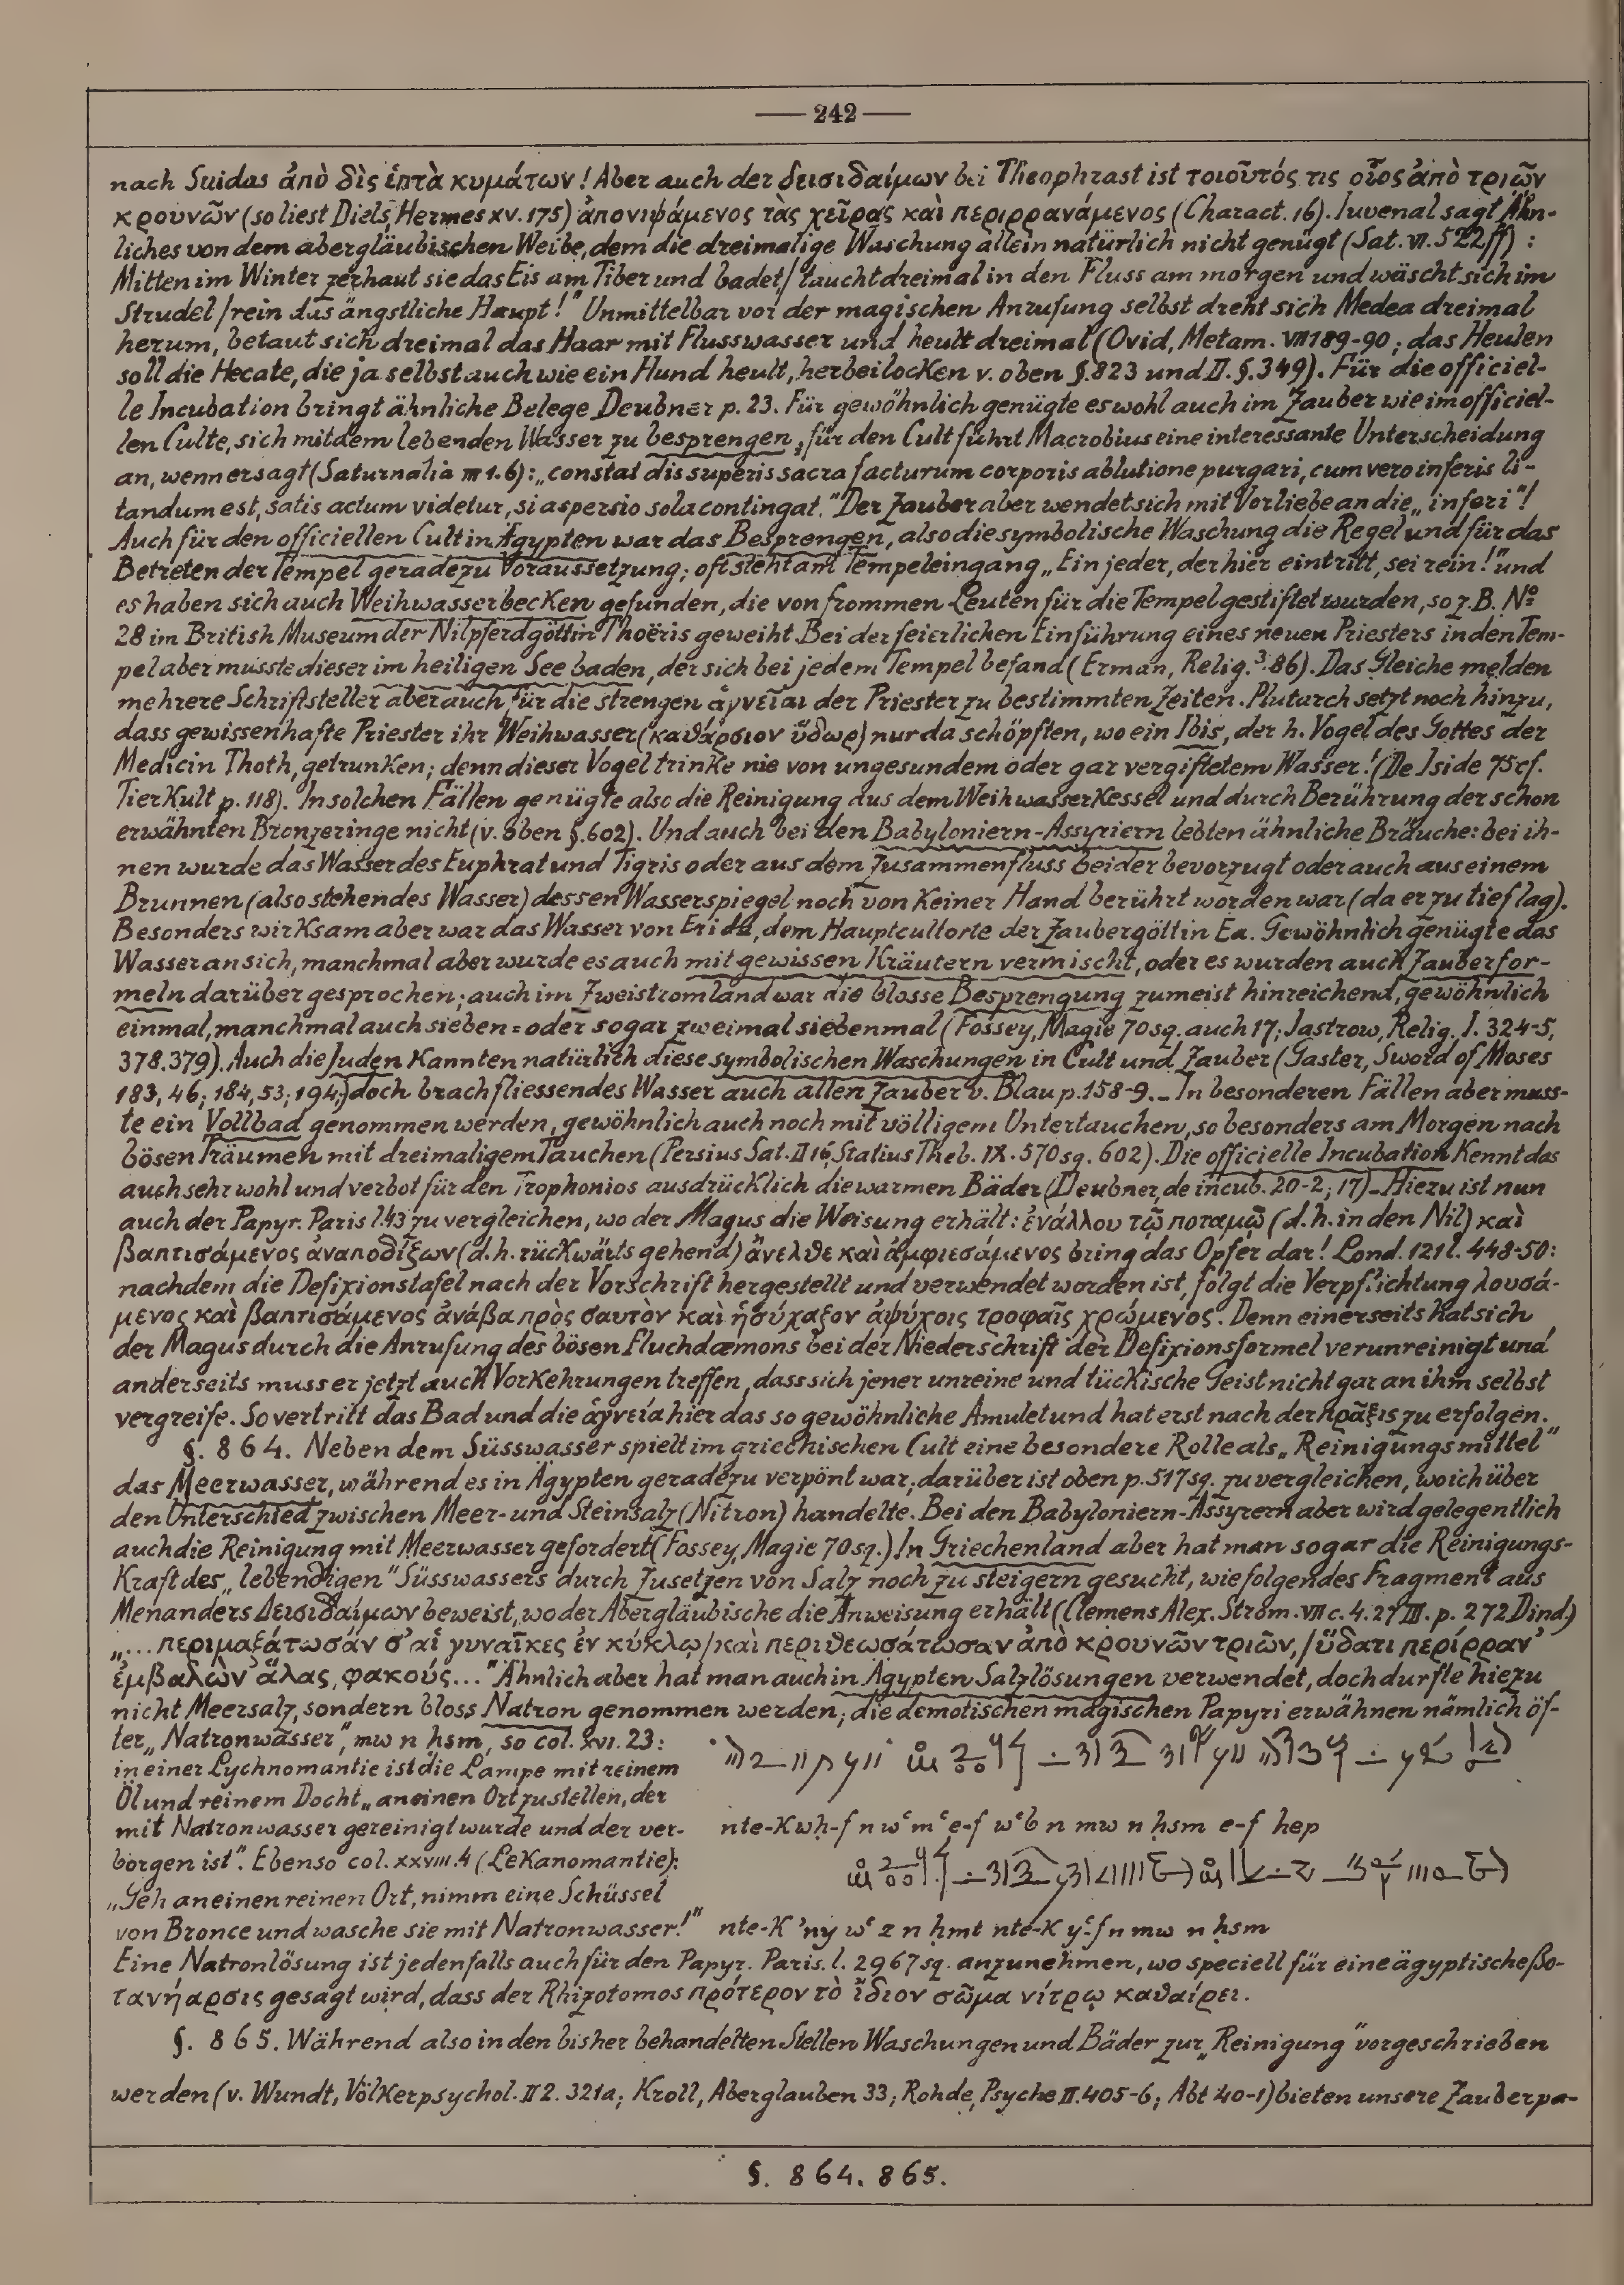 — 242 —
nach Suidas ἀπὸ δὶς ἑπτὰ κυμάτων! Aber auch der δεισιδαίμων bei Theophrast ist τοιοῦτός τις οἷος ἀπὸ τριῶν
κρουνῶν (so liest Diels, Hermes XV. 175) ἀπονιψάμενος τὰς χεῖρας καὶ περιρρανάμενος (Charact. 16). Iuvenal sagt Ähn-
liches von dem abergläubischen Weibe, dem die dreimalige Waschung allein natürlich nicht genügt (Sat. VI. 522ff) :
Mitten im Winter zerhaut sie das Eis am Tiber und badet,/ taucht dreimal in den Fluss am morgen und wäscht sich im
Strudel / rein das ängstliche Haupt!" Unmittelbar vor der magischen Anrufung selbst dreht sich Medea dreimal
herum, betaut sich dreimal das Haar mit Flusswasser und heult dreimal (Ovid, Metam. VII 189-90; das Heulen
soll die Hecate, die ja selbst auch wie ein Hund heult, herbeilocken v. oben §. 823 und II. §. 349). Für die officiel-
le Incubation bringt ähnliche Belege Deubner p. 23. Für gewöhnlich genügte es wohl auch im Zauber wie im officiel-
len Culte, sich mit dem lebenden Wasser zu besprengen, für den Cult führt Macrobius eine interessante Unterscheidung
an, wenn er sagt (Saturnalia III 1. 6): „constat dis superis sacra facturum corporis ablutione purgari, cum vero inferis li-
tandum est, satis actum videtur, si aspersio sola contingat." Der Zauber aber wendet sich mit Vorliebe an die „inferi"!
Auch für den officiellen Cult in Ägypten war das Besprengen, also die symbolische Waschung die Regel und für das
Betreten der Tempel geradezu Voraussetzung; oft steht am Tempeleingang „Ein jeder, der hier eintritt, sei rein!" und
es haben sich auch Weihwasserbecken gefunden, die von frommen Leuten für die Tempel gestiftet wurden, so z. B. Nº
28 im British Museum der Nilpferdgöttin Thoëris geweiht. Bei der feierlichen Einführung eines neuen Priesters in den Tem-
pel aber musste dieser im heiligen See baden, der sich bei jedem Tempel befand (Erman, Relig.³ 86). Das Gleiche melden
mehrere Schriftsteller aber auch für die strengen ἁγνεῖαι der Priester zu bestimmten Zeiten. Plutarch setzt noch hinzu,
dass gewissenhafte Priester ihr Weihwasser (καθάρσιον ὕδωρ) nur da schöpften, wo ein Ibis, der h. Vogel des Gottes der
Medicin Thoth, getrunken; denn dieser Vogel trinke nie von ungesundem oder gar vergiftetem Wasser! (De Iside 75 cf.
TierKult p. 118). In solchen Fällen genügte also die Reinigung aus dem WeihwasserKessel und durch Berührung der schon
erwähnten Bronzeringe nicht (v. oben §. 602). Und auch bei den Babyloniern-Assyriern lebten ähnliche Bräuche: bei ih-
nen wurde das Wasser des Euphrat und Tigris oder aus dem Zusammenfluss beider bevorzugt oder auch aus einem
Brunnen (also stehendes Wasser) dessen Wasserspiegel noch von Keiner Hand berührt worden war (da er zu tief lag).
Besonders wirKsam aber war das Wasser von Eridu, dem Hauptcultorte der Zaubergöttin Ea. Gewöhnlich genügte das
Wasser an sich, manchmal aber wurde es auch mit gewissen Kräutern vermischt, oder es wurden auch Zauberfor-
meln darüber gesprochen; auch im Zweistromland war die blosse Besprengung zumeist hinreichend, gewöhnlich
einmal, manchmal auch sieben = oder sogar zweimal siebenmal (Fossey, Magie 70 sq. auch 17; Jastrow, Relig. I. 324-5,
378. 379). Auch die Juden Kannten natürlich diese symbolischen Waschungen in Cult und Zauber (Gaster, Sword of Moses
183, 46; 184, 53; 194;) doch brach fliessendes Wasser auch allen Zauber v. Blau p. 158-9. _ In besonderen Fällen aber muss-
te ein Vollbad genommen werden, gewöhnlich auch noch mit völligem Untertauchen, so besonders am Morgen nach
bösen Träumen mit dreimaligem Tauchen (Persius Sat. II 16, Statius Theb. IX. 570 sq. 602). Die officielle Incubation Kennt das
auch sehr wohl und verbot für den Trophonios ausdrücklich die warmen Bäder (Deubner, de incub. 20-2; 17) _ Hiezu ist nun
auch der Papyr. Paris l. 43 zu vergleichen, wo der Magus die Weisung erhält: ἐνάλλου τῷ ποταμῷ (d. h. in den Nil) καὶ
βαπτισάμενος ἀναποδίζων (d. h. rückwärts gehend) ἄνελθε καὶ ἀμφιεσάμενος bring das Opfer dar! Lond. 121 l. 448-50:
nachdem die Defixionstafel nach der Vorschrift hergestellt und verwendet worden ist, folgt die Verpflichtung λουσά-
μενος καὶ βαπτισάμενος ἀνάβα πρὸς σαυτὸν καὶ ἡσύχαζον ἀψύχοις τροφαῖς χρώμενος. Denn einerseits hat sich
der Magus durch die Anrufung des bösen Fluchdæmons bei der Niederschrift der Defixionsformel verunreinigt und
anderseits muss er jetzt auch VorKehrungen treffen, dass sich jener unreine und tückische Geist nicht gar an ihm selbst
vergreife. So vertritt das Bad und die ἁγνεία hier das so gewöhnliche Amulet und hat erst nach der πρᾶξις zu erfolgen.
§. 864. Neben dem Süsswasser spielt im griechischen Cult eine besondere Rolle als „Reinigungsmittel"
das Meerwasser, während es in Ägypten geradezu verpönt war; darüber ist oben p. 517 sq. zu vergleichen, wo ich über
den Unterschied zwischen Meer- und Steinsalz (Nitron) handelte. Bei den Babyloniern-Assyrern aber wird gelegentlich
auch die Reinigung mit Meerwasser gefordert (Fossey, Magie 70 sq.) In Griechenland aber hat man sogar die Reinigungs-
Kraft des „lebendigen" Süsswassers durch Zusetzen von Salz noch zu steigern gesucht, wie folgendes Fragment aus
Menanders Δεισιδαίμων beweist, wo der Abergläubische die Anweisung erhält (Clemens Alex. Strom. VII c. 4. 27 III. p. 272 Dind.)
„... περιμαξάτωσάν σ' αἱ γυναῖκες ἐν κύκλῳ / καὶ περιθεωσάτωσαν ἀπὸ κρουνῶν τριῶν, / ὕδατι περίρραν'
ἐμβαλὼν ἅλας, φακούς..." Ähnlich aber hat man auch in Ägypten Salzlösungen verwendet, doch durfte hiezu
nicht Meersalz, sondern bloss Natron genommen werden; die demotischen magischen Papyri erwähnen nämlich öf-
ter „Natronwasser", mw n ḥsm, so col. XVI. 23:
in einer Lychnomantie ist die Lampe mit reinem
Öl und reinem Docht „an einen Ort zu stellen, der
mit Natronwasser gereinigt wurde und der ver- nte-Kwḥ-f n wʿ mʿ e-f wʿb n mw n ḥsm e-f hep
borgen ist". Ebenso col. XXVIII. 4 (LeKanomantie):
„Geh an einen reinen Ort, nimm eine Schüssel
von Bronce und wasche sie mit Natronwasser!" nte-K 'ny wʿ z n ḥmt nte-K yʿ-f n mw n ḥsm
Eine Natronlösung ist jedenfalls auch für den Papyr. Paris. l. 2967 sq. anzunehmen, wo speciell für eine ägyptische βο-
τανήαρσις gesagt wird, dass der Rhizotomos πρότερον τὸ ἴδιον σῶμα νίτρῳ καθαίρει.
§. 865. Während also in den bisher behandelten Stellen Waschungen und Bäder zur „Reinigung" vorgeschrieben
werden (v. Wundt, VölKerpsychol. II 2. 321a; Kroll, Aberglauben 33; Rohde, Psyche II. 405-6; Abt 40-1) bieten unsere Zauberpa-
§. 864. 865.